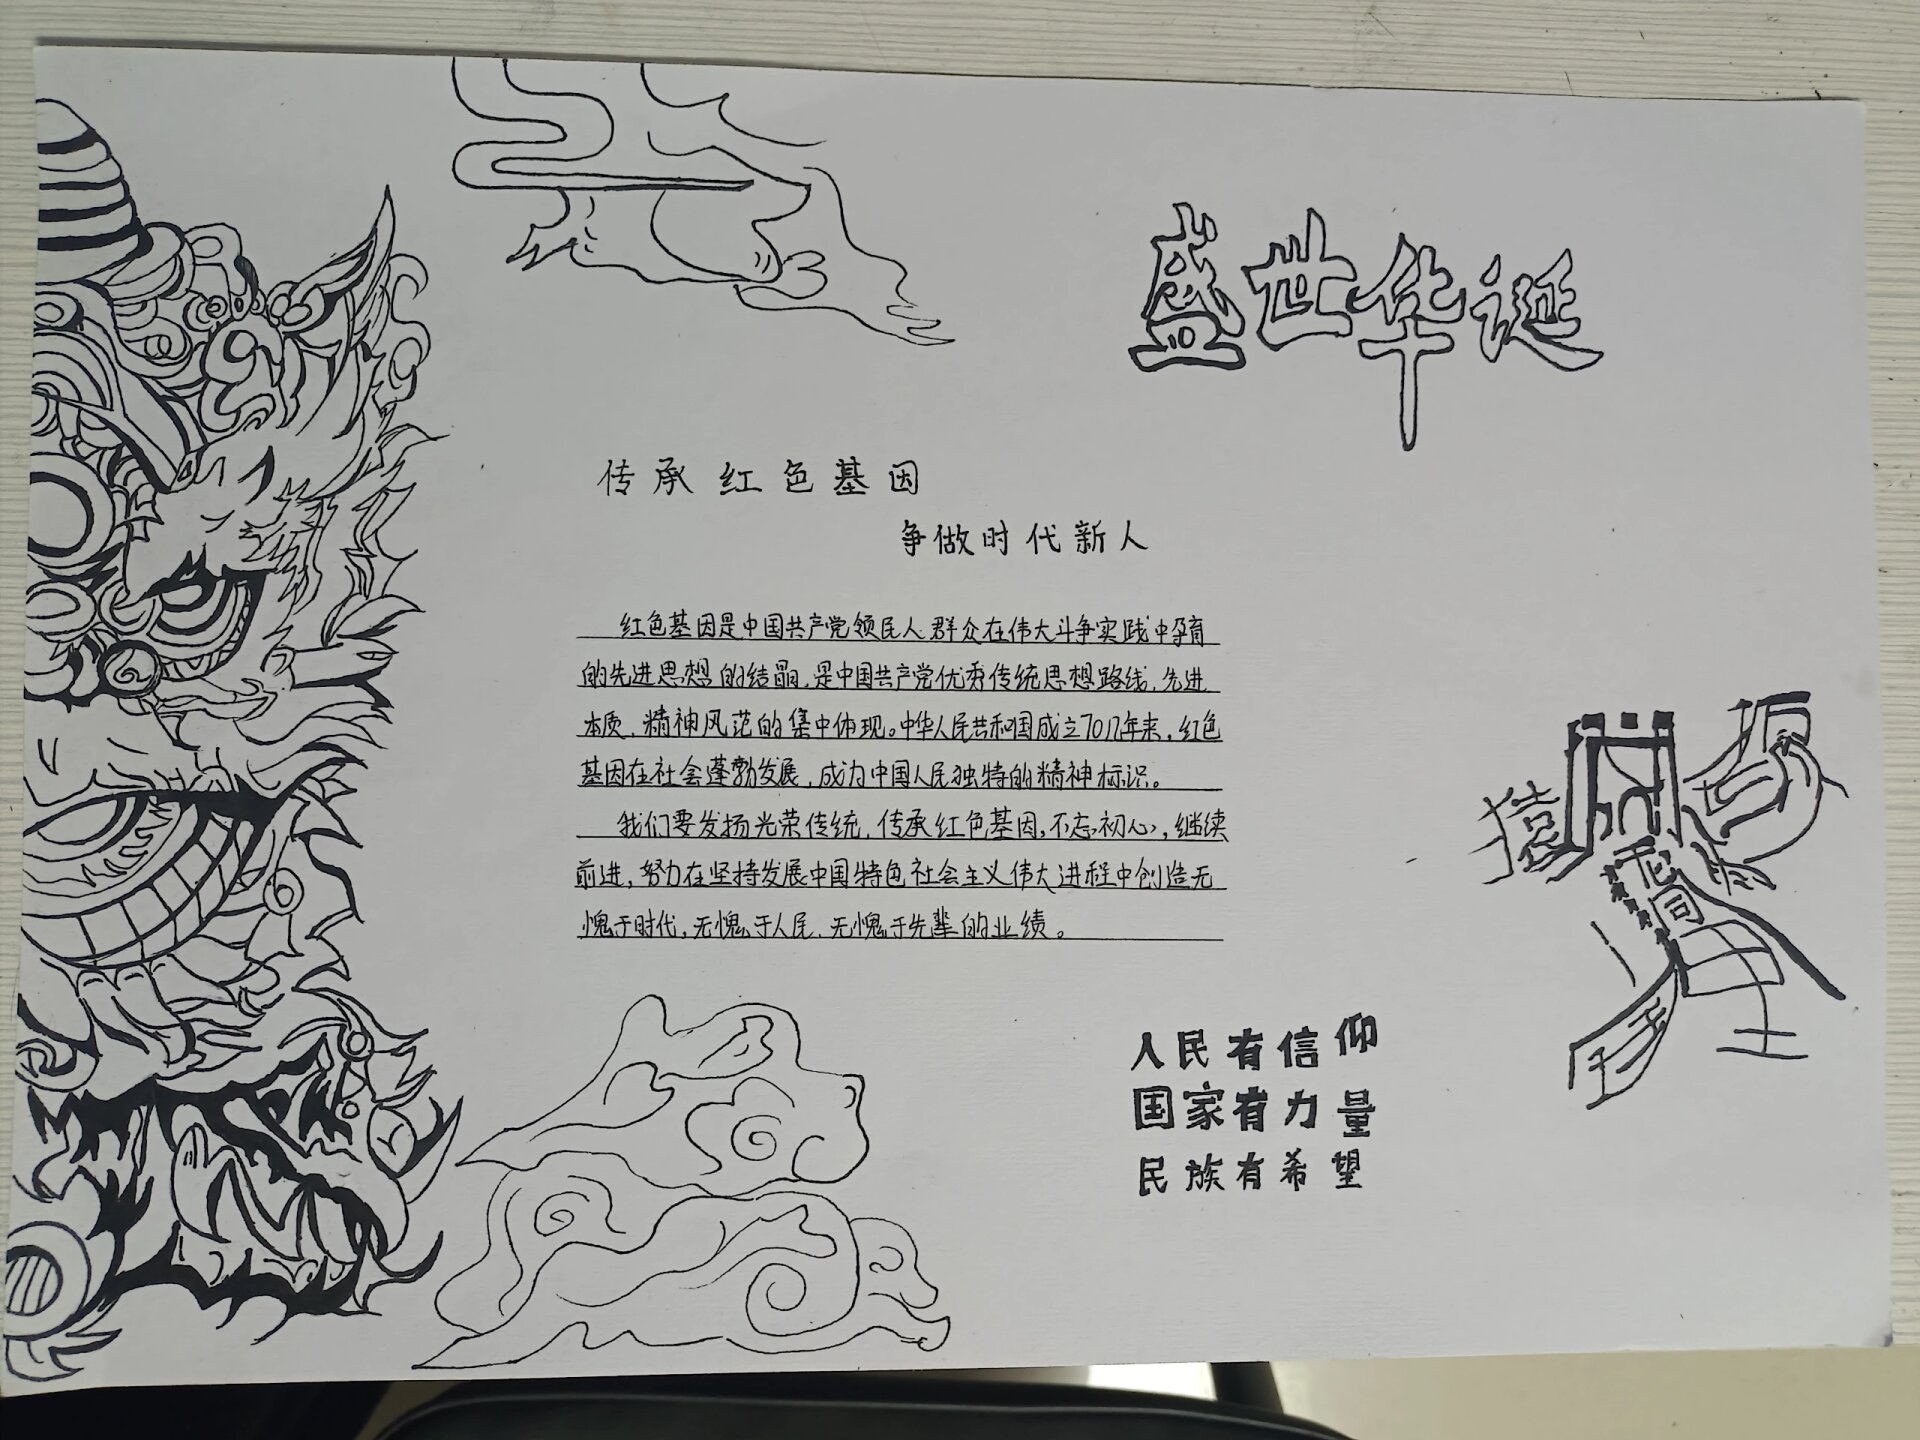 盛世华诞
传承红色基因
争做时代新人
红色基因是中国共产党领民人群众在伟大斗争实践中孕育
的先进思想的结晶，是中国共产党优秀传统思想路线，先进
本质，精神风范的集中体现。中华人民共和国成立70几年来，红色
基因在社会蓬勃发展，成为中国人民独特的精神标识。
我们要发扬光荣传统，传承红色基因，不忘初心，继续
前进，努力在坚持发展中国特色社会主义伟大进程中创造无
愧于时代，无愧于人民，无愧于先辈的业绩。
人民有信仰
国家有力量
民族有希望